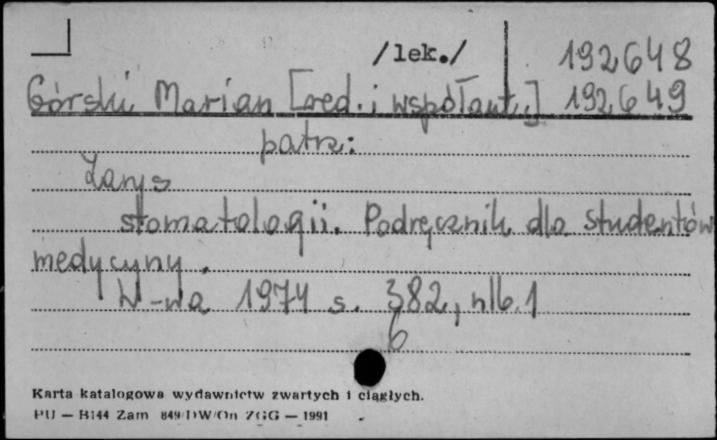 /lek./ 192648
Górski Marian [red. i współaut.] 192649
patrz:
Zarys
stomatologii. Podręcznik dla studentów
medycyny.
W-wa 1974 s. 382, nlb. 1
6
Karta katalogowa wydawnictw zwartych i ciągłych.
PU — H144 Zam 849/DW/On ZGG — 1991